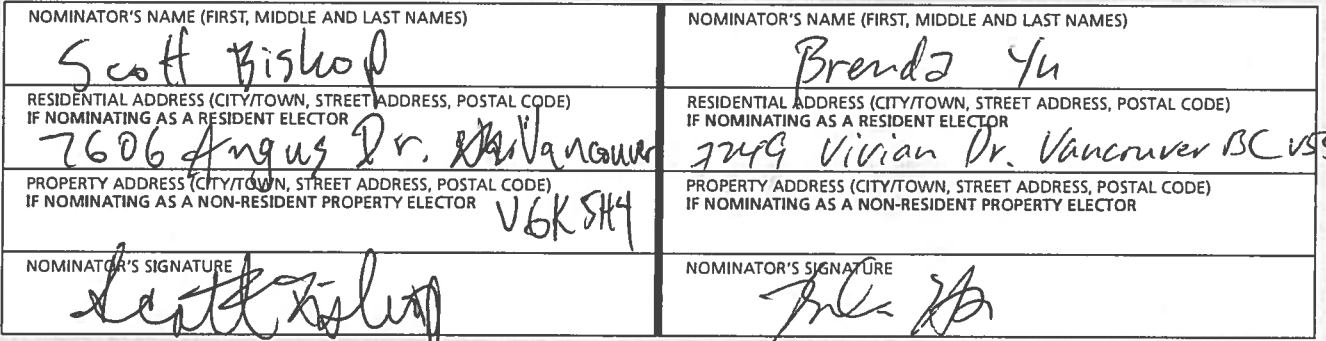 NOMINATOR'S NAME (FIRST, MIDDLE AND LAST NAMES)
Scott Bishop
RESIDENTIAL ADDRESS (CITY/TOWN, STREET ADDRESS, POSTAL CODE)
IF NOMINATING AS A RESIDENT ELECTOR
7606 Angus Dr. Vancouver
PROPERTY ADDRESS (CITY/TOWN, STREET ADDRESS, POSTAL CODE)
IF NOMINATING AS A NON-RESIDENT PROPERTY ELECTOR
V6K 5H4
NOMINATOR'S SIGNATURE
Scott Bishop
NOMINATOR'S NAME (FIRST, MIDDLE AND LAST NAMES)
Brenda Yu
RESIDENTIAL ADDRESS (CITY/TOWN, STREET ADDRESS, POSTAL CODE)
IF NOMINATING AS A RESIDENT ELECTOR
7249 Vivian Dr. Vancouver BC V5S
PROPERTY ADDRESS (CITY/TOWN, STREET ADDRESS, POSTAL CODE)
IF NOMINATING AS A NON-RESIDENT PROPERTY ELECTOR
NOMINATOR'S SIGNATURE